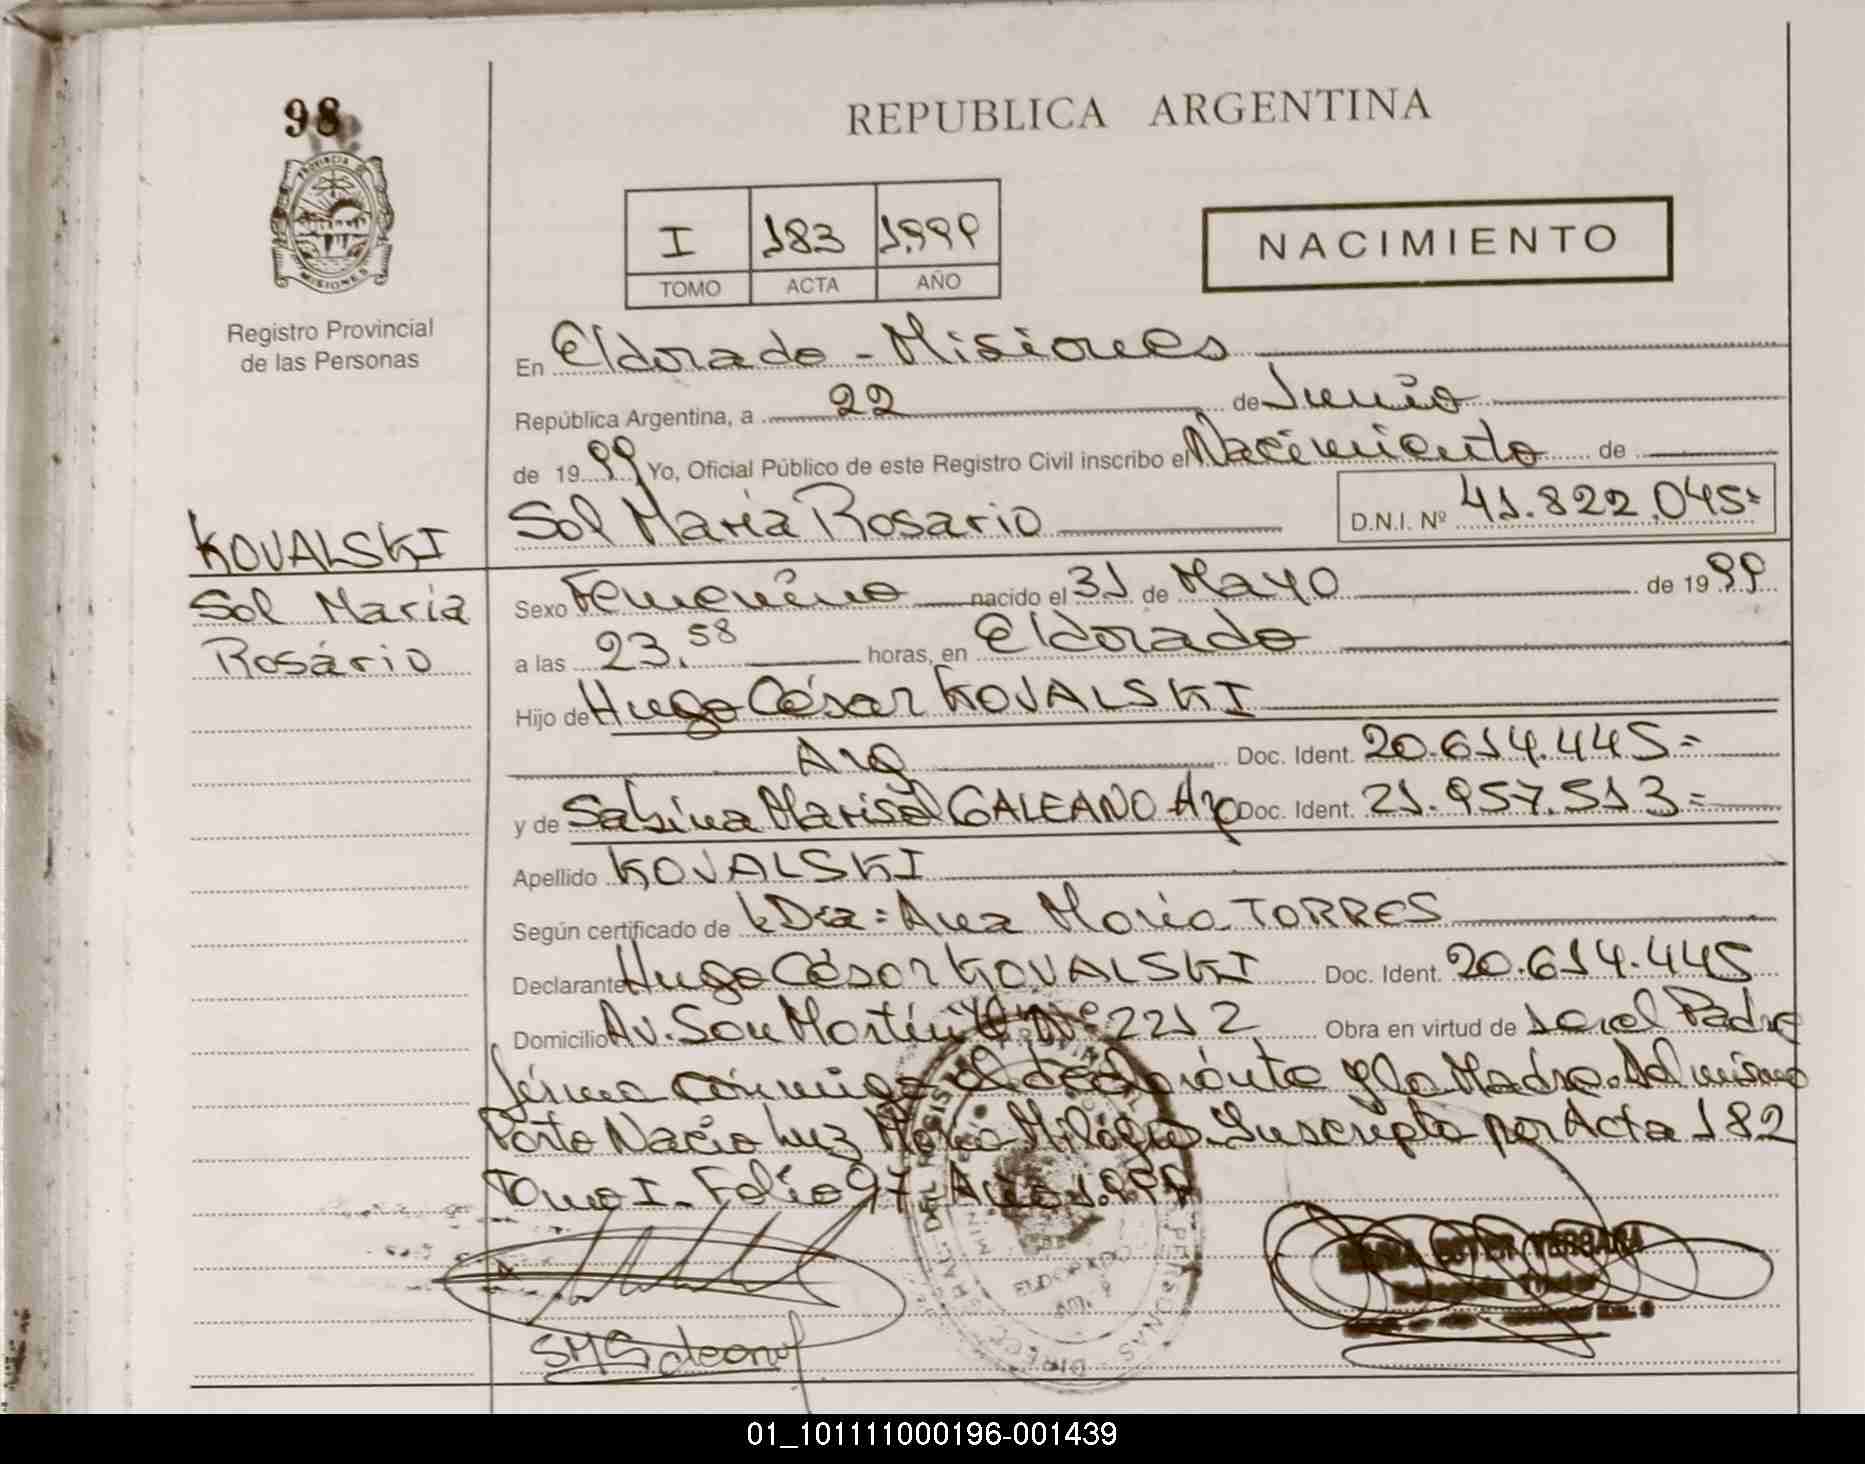 98
PROVINCIA DE
MISIONES
Registro Provincial
de las Personas
KOVALSKI
Sol María
Rosário
REPUBLICA ARGENTINA
I 183 1.999
TOMO ACTA AÑO
NACIMIENTO
En Eldorado - Misiones
República Argentina, a 22 de Junio
de 1999 Yo, Oficial Público de este Registro Civil inscribo el Nacimiento de
Sol María Rosario D.N.I. Nº 41.822.045=
Sexo Femenino nacido el 31 de Mayo de 1999
a las 23.58 horas, en Eldorado
Hijo de Hugo César KOVALSKI
Arg Doc. Ident. 20.614.445=
y de Sabina Marisol GALEANO Arg Doc. Ident. 21.957.513=
Apellido KOVALSKI
Según certificado de Dra: Ana María TORRES
Declarante Hugo César KOVALSKI Doc. Ident. 20.614.445
Domicilio Av. San Martín Nº 2212 Obra en virtud de Padre
conmigo el declarante y la Madre. Del mismo
Parto Nacio Luz María Milagros Inscripta por Acta 182
Tomo I. Folio 97 Año 1.999
SMGaleano
MARIA ESTER VERGARA
ELDORADO
01_101111000196-001439